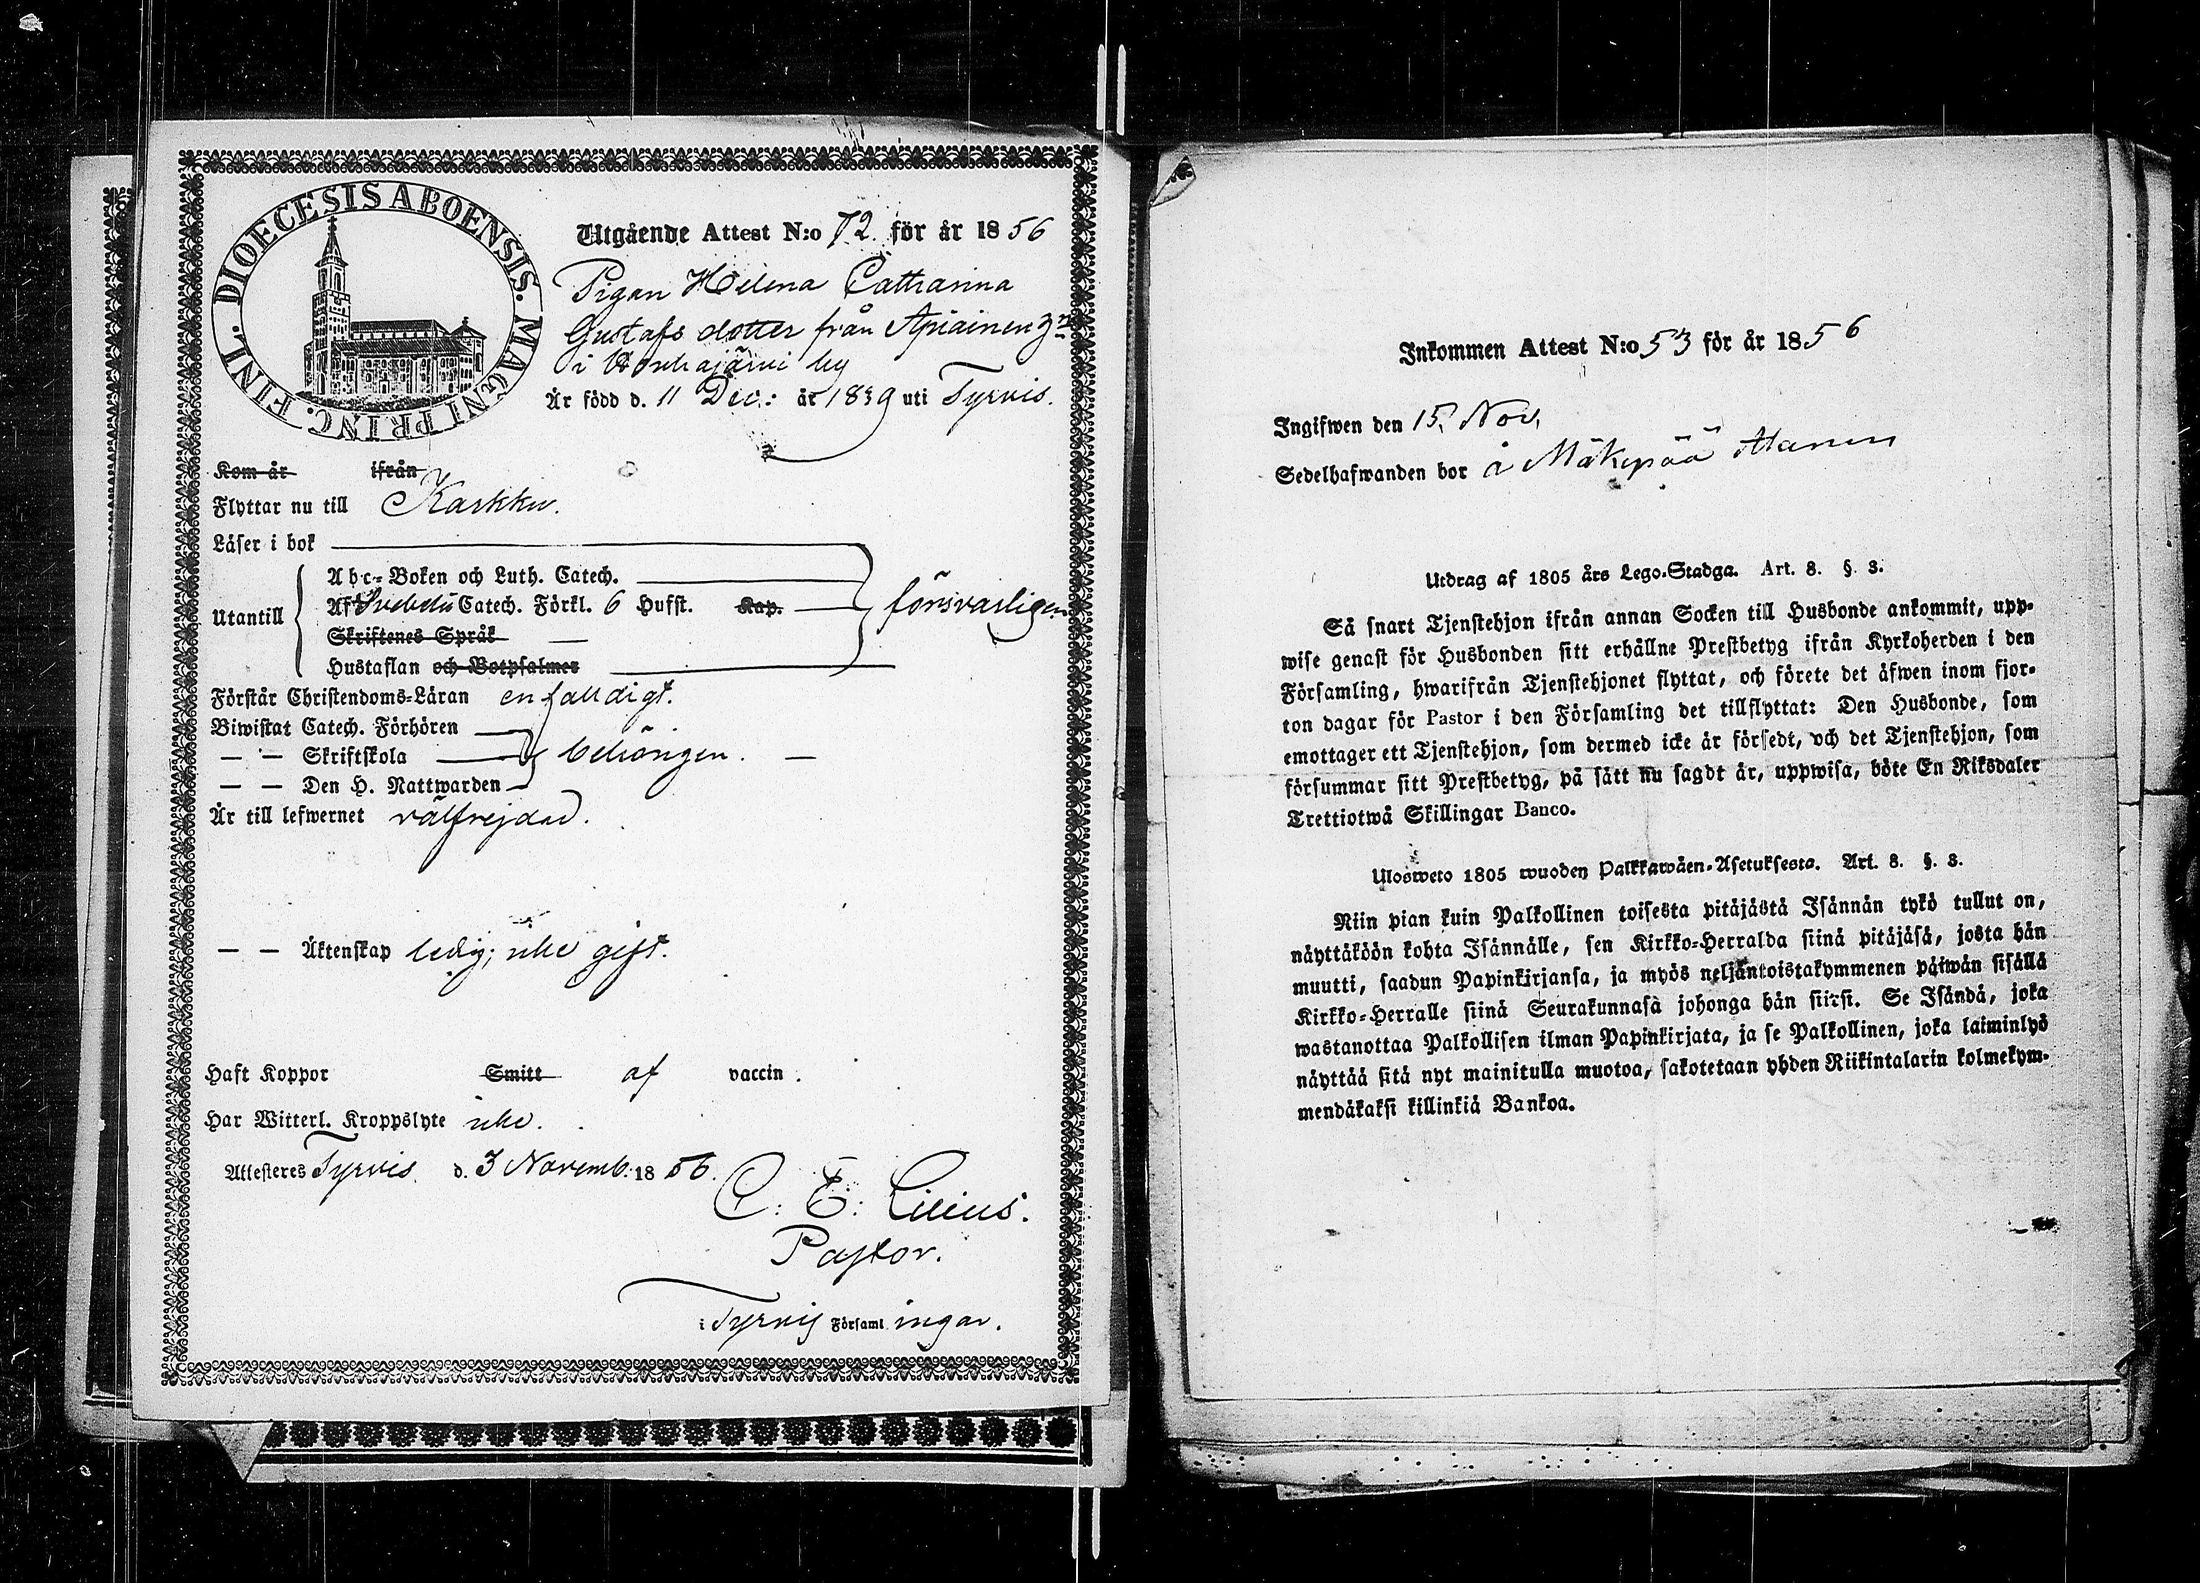 DIOECESIS ABOENSIS. MAGNI PRINC. FINL.
Utgående Attest N:o 72 för år 1856
Pigan Helena Catharina
Gustafs dotter från Apiainen
i by
Är född d. 11 Dec: år 1839 uti Tyrvis.
Kom år ifrån
Flyttar nu till Karkku.
Läser i bok
Abc-Boken och Luth. Catech.
Utantill Af Svebelii Catech. Förkl. 6 Hufst. Kap. försvarligen
Skriftenes Språk
Hustaflan och Botpsalmer
Förstår Christendoms-Läran enfalldigt.
Biwistat Catech. Förhören
— — Skriftskola behörigen. —
— — Den H. Nattwarden
Är till lefwernet välfrejdad.
— — Äktenskap ledig; icke gift.
Haft Koppor Smitt af vaccin.
Har Witterl. Kroppslyte icke.
Attesteres Tyrvis. d. 3 Novemb. 1856.
C. E. Lilius.
Pastor.
i Tyrvis Församl ingar.
Inkommen Attest N:o 53 för år 1856
Ingifwen den 15. Nov.
Sedelhafwanden bor å Mäkipää
Utdrag af 1805 års Lego-Stadga. Art. 8. §. 3.
Så snart Tjenstehjon ifrån annan Socken till Husbonde ankommit, upp-
wise genast för Husbonden sitt erhållne Prestbetyg ifrån Kyrkoherden i den
Församling, hwarifrån Tjenstehjonet flyttat, och förete det äfwen inom fjor-
ton dagar för Pastor i den Församling det tillflyttat: Den Husbonde, som
emottager ett Tjenstehjon, som dermed icke är försedt, och det Tjenstehjon, som
försummar sitt Prestbetyg, på sätt nu sagdt är, uppwisa, böte En Riksdaler
Trettiotwå Skillingar Banco.
Ulosweto 1805 wuoden Palkkawäen-Asetuksesta. Art. 8. §. 3.
Niin pian kuin Palkollinen toisesta pitäjästä Isännän tykö tullut on,
näyttäköön kohta Isännälle, sen Kirkko-Herralda siinä pitäjäsä, josta hän
muutti, saadun Papinkirjansa, ja myös neljäntoistakymmenen päiwän sisällä
Kirkko-Herralle siinä Seurakunnasà johonga hän siirsi. Se Isändä, joka
wastanottaa Palkollisen ilman Papinkirjata, ja se Palkollinen, joka laiminlyö
näyttää sitä nyt mainitulla muotoa, sakotetaan yhden Riikintalarin kolmekym-
mendäkaksi killinkiä Bankoa.